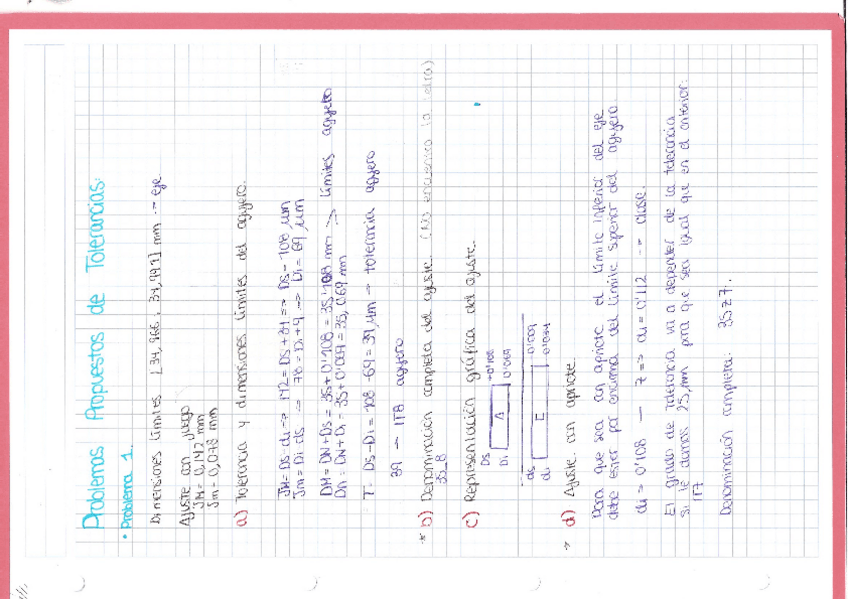 Problemas Propuestos de Tolerancias:
• Problema 1.
Dimensiones límites [34,966 ; 34,991] mm → eje
Ajuste con juego
JM = 0,142 mm
Jm = 0,078 mm
a) Tolerancia y dimensiones límites del agujero.
JM = Ds - di → 142 = Ds + 34 => Ds = 108 µm
Jm = Di - ds → 78 = Di + 9 => Di = 69 µm
DM = DN + Ds = 35 + 0'108 = 35'108 mm → límites agujero
Dm = DN + Di = 35 + 0'069 = 35,069 mm
T = Ds - Di = 108 - 69 = 39 µm → tolerancia agujero
39 → IT8 agujero
* b) Denominación completa del ajuste. (No encuentro la letra)
35_8
c) Representación gráfica del ajuste.
Ds 0'108
A
Di 0'069
ds -0'009
E
di -0'034
* d) Ajuste con apriete.
Para que sea con apriete el límite inferior del eje
debe estar por encima del límite superior del agujero.
di = 0'108 — z => di = 0'112 → clase.
El grado de tolerancia va a depender de la tolerancia
si le damos 25 µm para que sea igual que en el anterior:
IT7
Denominación completa: 35z7.